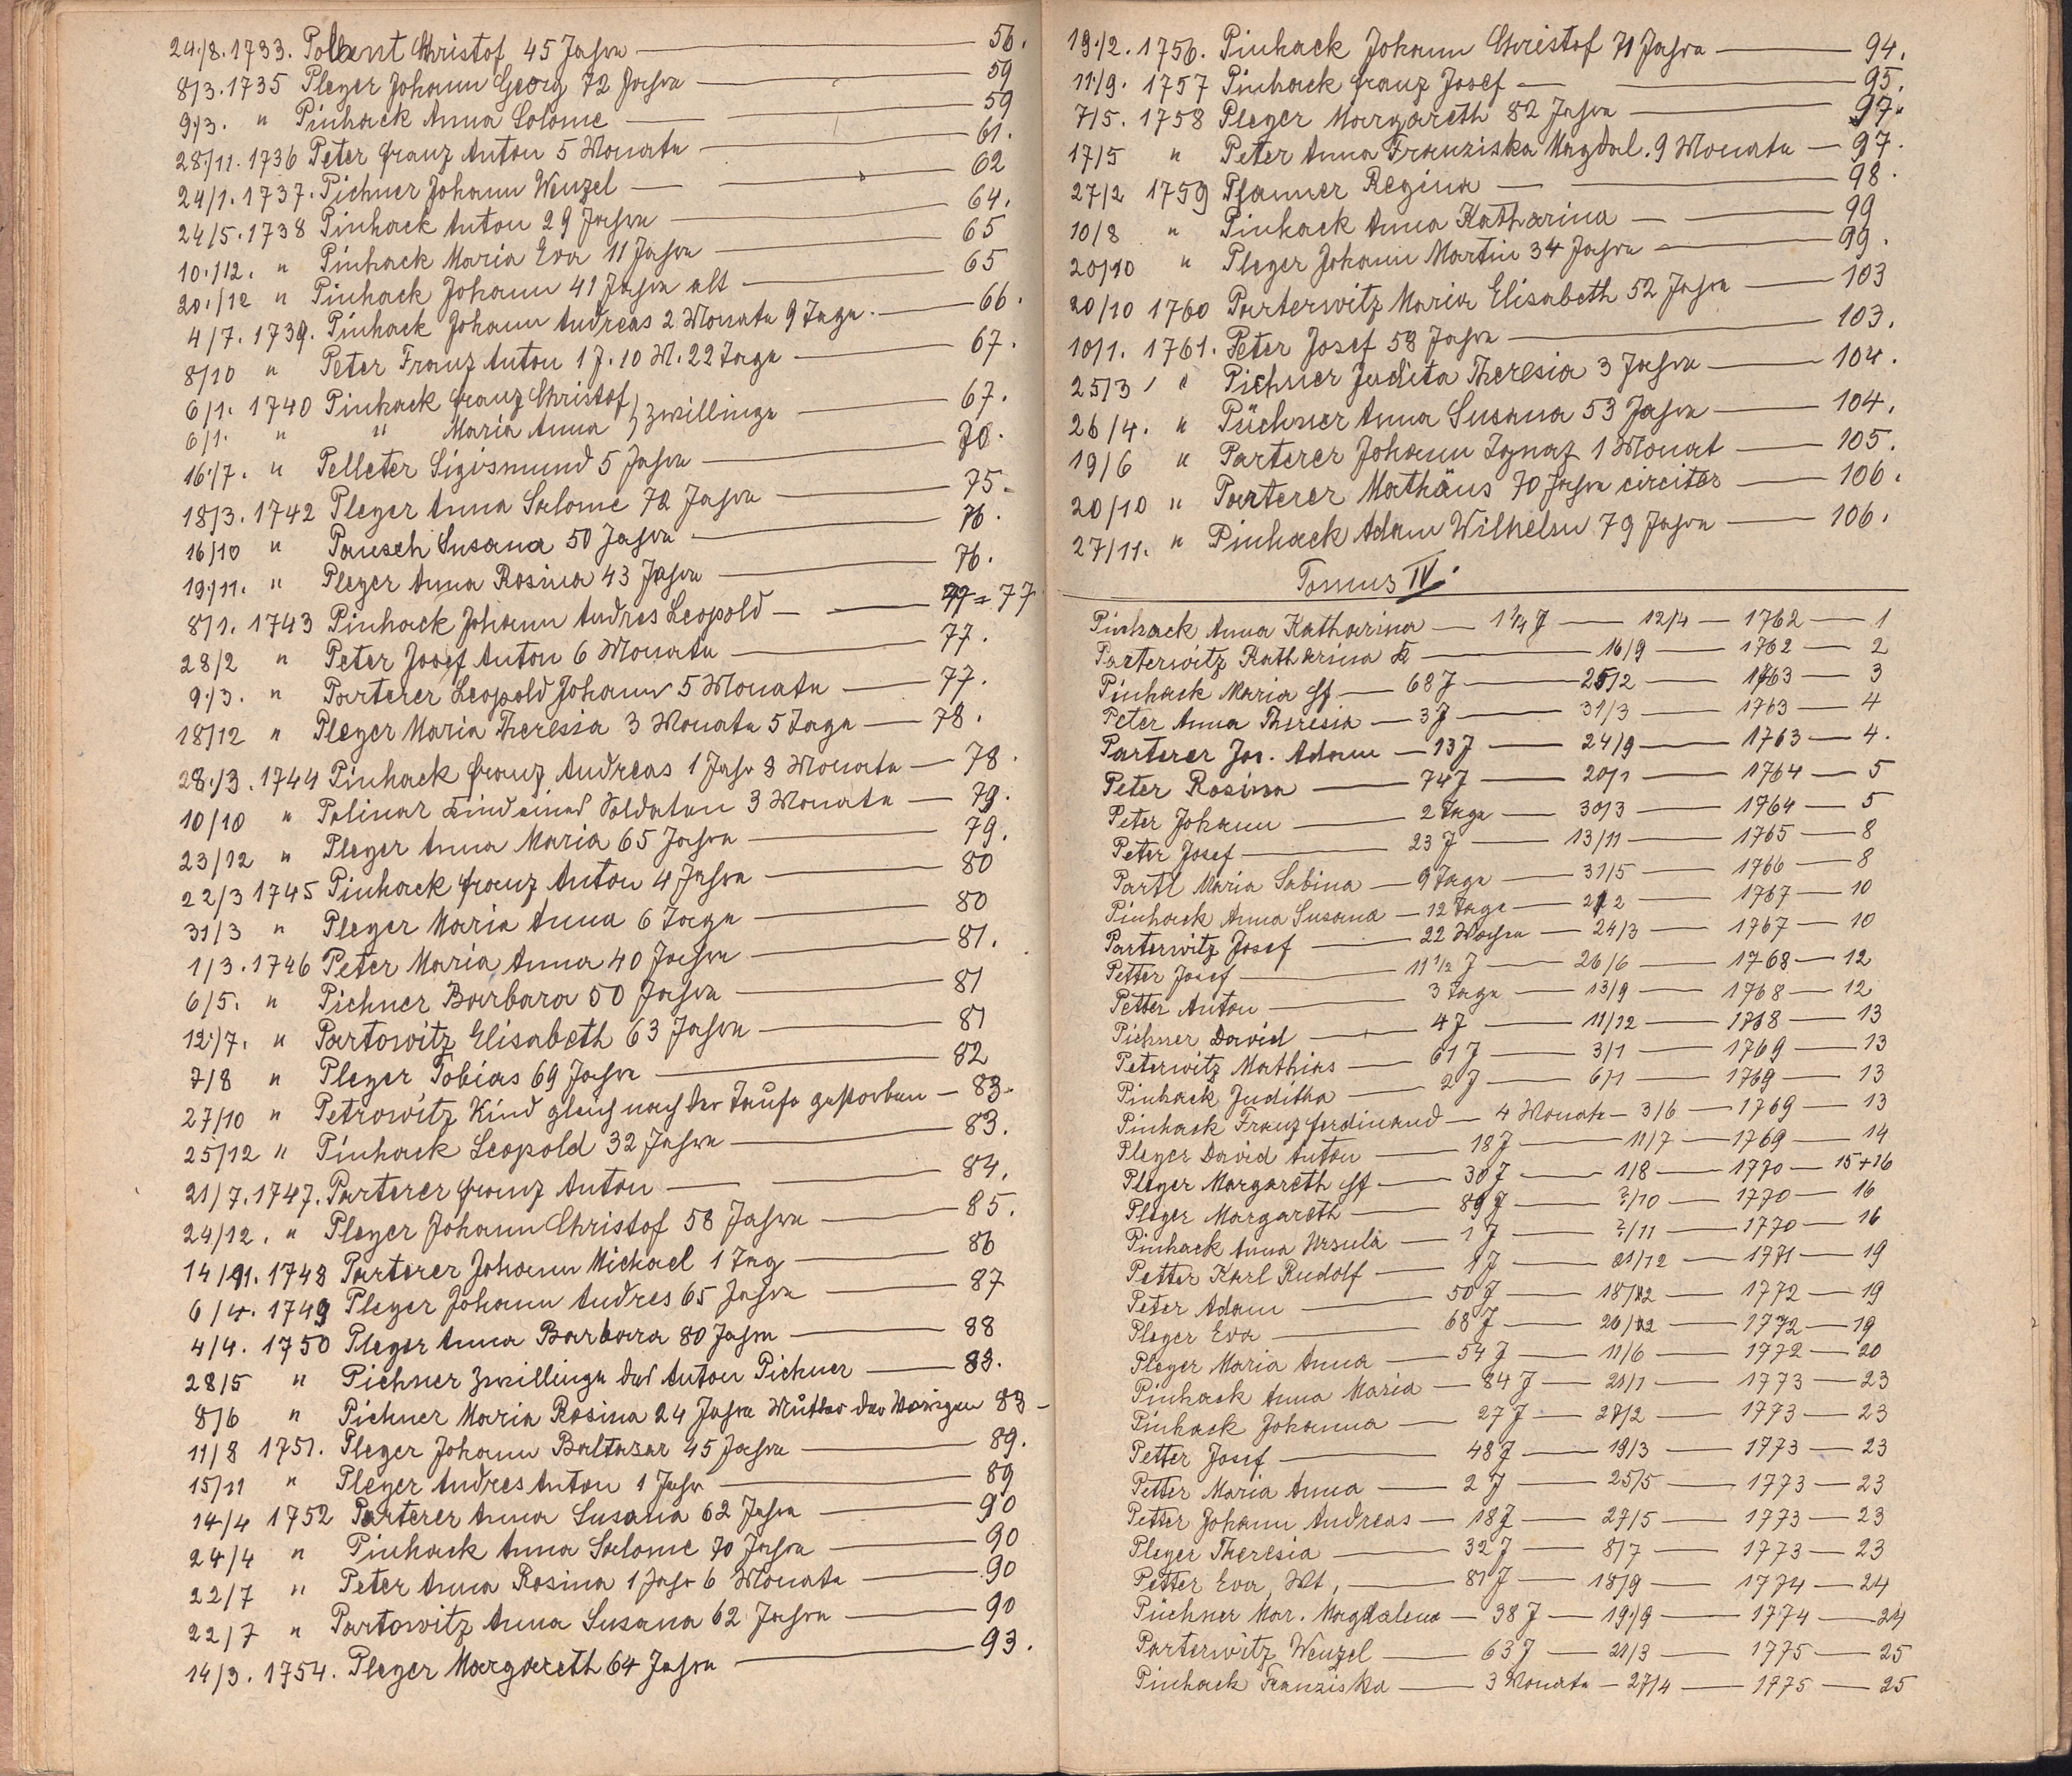 24./8. 1733. Polbent Christof 45 Jahre — 56.
8/3. 1735 Pleyer Johann Georg 72 Jahre — 59
9./3. " Pinhack Anna Solome — 59
28./11. 1736 Peter Franz Anton 5 Monate — 61.
24/1. 1737. Pichner Johann Wenzel — 62
24/5. 1738 Pinhack Anton 29 Jahre — 64.
10./12. " Pinhack Maria Eva 11 Jahre — 65
20./12 " Pinhack Johann 41 Jahre alt — 65
4/7. 1739. Pinhack Johann Andreas 2 Monate 9 Tage. — 66.
8/10 " Peter Franz Anton 1 J. 10 M. 22 Tage — 67.
6/1. 1740 Pinhack Franz Christof } Zwillinge — 67.
6/1. " " Maria Anna
16./7. " Pelleter Sigismund 5 Jahre — 70.
18/3. 1742 Pleyer Anna Salome 72 Jahre — 75.
16/10 " Pausch Susana 50 Jahre — 76.
19./11. " Pleyer Anna Rosina 43 Jahre — 76.
8/1. 1743 Pinhack Johann Andres Leopold — 77 = 77
28/2 " Peter Josef Anton 6 Monate — 77.
9./3. " Parterer Leopold Johann 5 Monate — 77.
18/12 " Pleyer Maria Theresia 3 Monate 5 Tage — 78.
28./3. 1744 Pinhack Franz Andreas 1 Jahr 8 Monate — 78.
10/10 " Polinar Kind eines Soldaten 3 Monate — 79.
23/12 " Pleyer Anna Maria 65 Jahre — 79.
22/3 1745 Pinhack Franz Anton 4 Jahre — 80
31/3 " Pleyer Maria Anna 6 Tage — 80
1/3. 1746 Peter Maria Anna 40 Jahre — 81.
6/5. " Pichner Barbara 50 Jahre — 81
12./7. " Partowitz Elisabeth 63 Jahre — 81
7/8 " Pleyer Tobias 69 Jahre — 82
27/10 " Petrowitz Kind gleich nach der Taufe gestorben — 83.
25/12 " Pinhack Leopold 32 Jahre — 83.
21/7. 1747. Parterer Franz Anton — 84.
24/12. " Pleyer Johann Christof 58 Jahre — 85.
14/11. 1748 Parterer Johann Michael 1 Tag — 86
6/4. 1749 Pleyer Johann Andres 65 Jahre — 87
4/4. 1750 Pleyer Anna Barbara 80 Jahre — 88
28/5 " Pichner Zwillinge des Anton Pichner — 88.
8/6 " Pichner Maria Rosina 24 Jahre Mutter der Vorigen 88 –
11/8 1751. Pleyer Johann Baltasar 45 Jahre — 89.
15/11 " Pleyer Andres Anton 1 Jahr — 89
14/4 1752 Parterer Anna Susana 62 Jahre — 90
24/4 " Pinhack Anna Salome 70 Jahre — 90
22/7 " Peter Anna Rosina 1 Jahr 6 Monate — 90
22/7 " Partowitz Anna Susana 62 Jahre — 90
14/3. 1754. Pleyer Margareth 64 Jahre — 93.
19./2. 1756. Pinhack Johann Christof 71 Jahre — 94.
11./9. 1757 Pinhack Franz Josef — 95.
7/5. 1758 Pleyer Margareth 82 Jahre — 97.
17/5 " Peter Anna Franziska Magdal. 9 Monate — 97.
27/2 1759 Pfanner Regina — 98.
10/8 " Pinhack Anna Katharina — 99
20/10 " Pleyer Johann Martin 34 Jahre — 99.
20/10 1760 Parterwitz Maria Elisabeth 52 Jahre — 103
10/1. 1761. Peter Josef 58 Jahre — 103.
25/3 " Pichner Judita Theresia 3 Jahre — 104.
26/4. " Püchner Anna Susana 53 Jahre — 104.
19/6 " Parterer Johann Ignaz 1 Monat — 105.
20/10 " Parterer Mathäus 70 Jahre circiter — 106.
27/11. " Pinhack Adam Wilhelm 79 Jahre — 106.
Tomus IV.
Pinhack Anna Katharina — 1 1/4 J — 12/4 — 1762 — 1
Parterwitz Katharina — 16/9 — 1762 — 2
Pinhack Maria — 68 J — 25/2 — 1763 — 3
Peter Anna Theresia — 3 J — 31/3 — 1763 — 4
Parterer Jos. Adam — 13 J — 24/9 — 1763 — 4.
Peter Rosina — 74 J — 20/1 — 1764 — 5
Peter Johann — 2 Tage — 30/3 — 1764 — 5
Peter Josef — 23 J — 13/11 — 1765 — 8
Partl Maria Sabina — 9 Tage — 31/5 — 1766 — 8
Pinhack Anna Susana — 12 Tage — 2/2 — 1767 — 10
Parterwitz Josef — 22 Wochen — 24/3 — 1767 — 10
Petter Josef — 11 1/2 J — 26/6 — 1768 — 12
Petter Anton — 3 Tage — 13/9 — 1768 — 12
Pichner David — 4 J — 11/12 — 1768 — 13
Peterwitz Mathias — 61 J — 3/1 — 1769 — 13
Pinhack Juditha — 2 J — 6/1 — 1769 — 13
Pinhack Franz Ferdinand — 4 Monate — 3/6 — 1769 — 13
Pleyer David Anton — 18 J — 11/7 — 1769 — 14
Pleyer Margareth — 30 J — 1/8 — 1770 — 15 + 16
Pleyer Margareth — 89 J — ?/10 — 1770 — 16
Pinhack Anna Ursula — 1 J — ?/11 — 1770 — 16
Petter Karl Rudolf — 1 J — 21/12 — 1771 — 19
Peter Adam — 50 J — 18/12 — 1772 — 19
Pleyer Eva — 68 J — 26/12 — 1772 — 19
Pleyer Maria Anna — 54 J — 11/6 — 1772 — 20
Pinhack Anna Maria — 84 J — 21/1 — 1773 — 23
Pinhack Johanna — 27 J — 27/2 — 1773 — 23
Petter Josef — 48 J — 19/3 — 1773 — 23
Petter Maria Anna — 2 J — 25/5 — 1773 — 23
Petter Johann Andreas — 18 J — 27/5 — 1773 — 23
Pleyer Theresia — 32 J — 8/7 — 1773 — 23
Petter Eva, Wt, — 81 J — 18/9 — 1774 — 24
Püchner Mar. Magdalena — 38 J — 19/9 — 1774 — 24
Parterwitz Wenzel — 63 J — 21/3 — 1775 — 25
Pinhack Franziska — 3 Monate — 27/4 — 1775 — 25